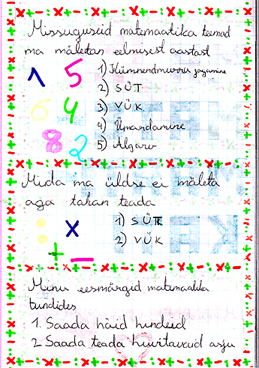 Missuguseid matemaatika teemad
ma mäletan eelmisest aastast
1 5
6 4
8 2
1) Kümnendmurru jagamine
2) SÜT
3) VÜK
4) Ümardamine
5) Algarv
Mida ma üldse ei mäleta
aga tahan teada
1) SÜT
2) VÜK
x
+ −
Minu eesmärgid matemaatika
tundides
1. Saada häid hindeid
2 Saada teada huvitavaid asju